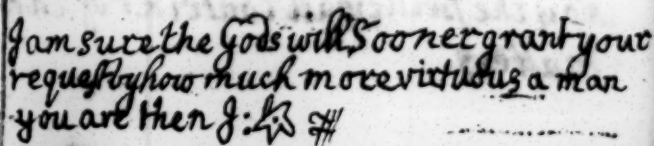 I am sure the Gods will Sooner grant your
request by how much more virtuous a man
you are then I: